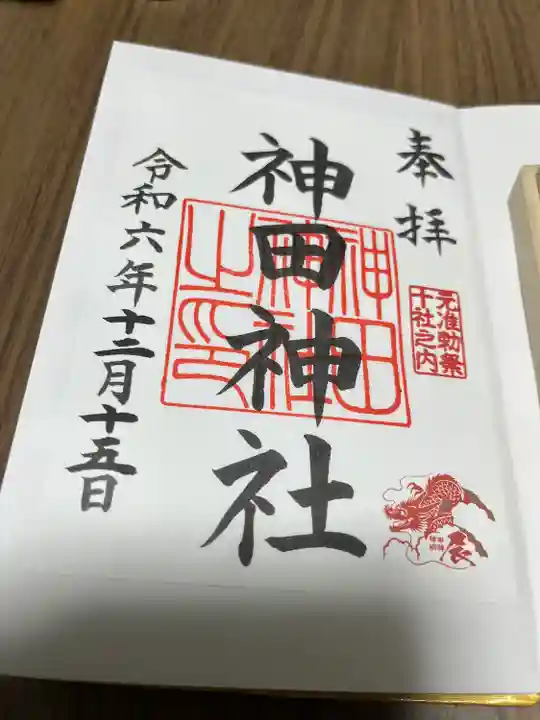 奉拝
元准勅祭
十社之内
神田神社
神田
神社
之印
辰
令和六年十二月十五日